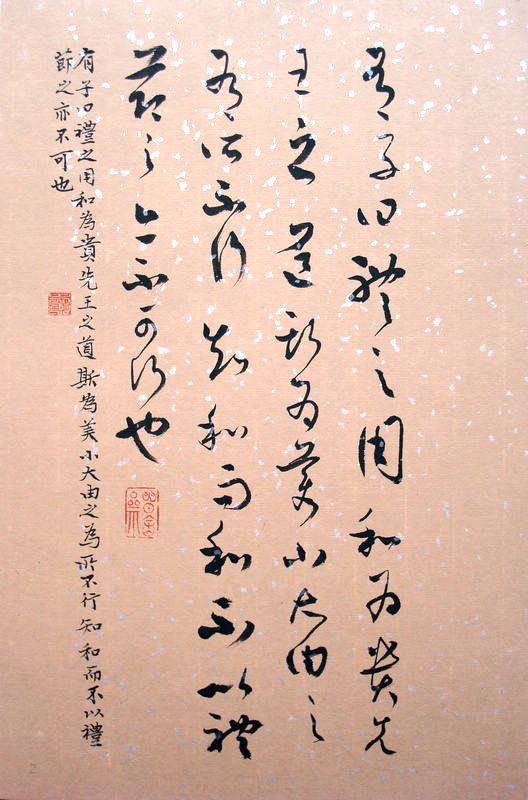 有子曰禮之用和為貴先
王之道斯為美小大由之
有所不行知和而和不以禮
節之亦不可行也
有子曰禮之用和為貴先王之道斯為美小大由之為所不行知和而不以禮
節之亦不可也